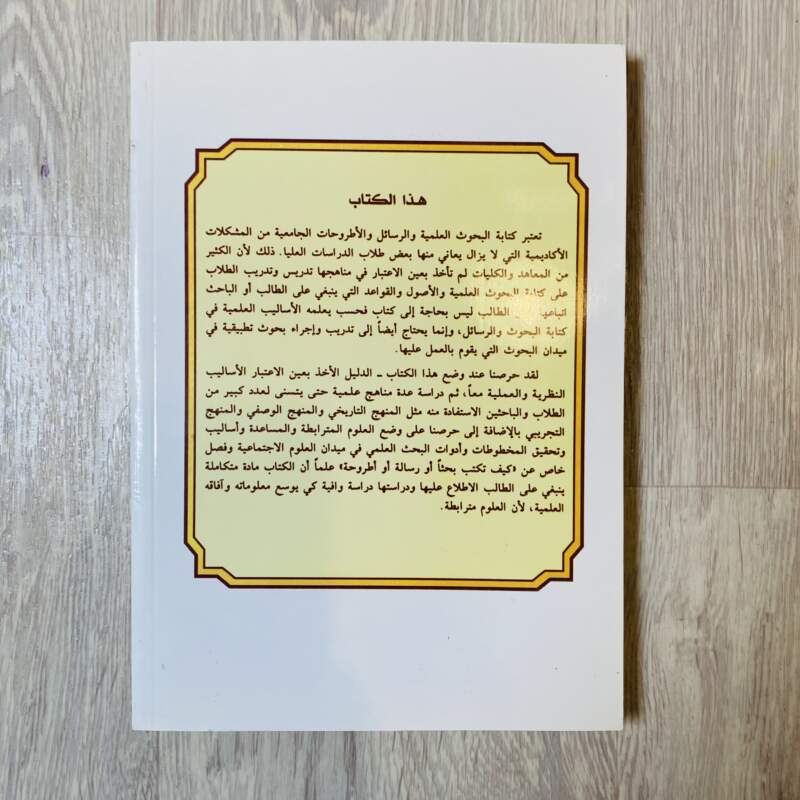 هذا الكتاب
تعتبر كتابة البحوث العلمية والرسائل والأطروحات الجامعية من المشكلات
الأكاديمية التي لا يزال يعاني منها بعض طلاب الدراسات العليا. ذلك لأن الكثير
من المعاهد والكليات لم تأخذ بعين الاعتبار في مناهجها تدريس وتدريب الطلاب
على كتابة البحوث العلمية والأصول والقواعد التي ينبغي على الطالب أو الباحث
الطالب ليس بحاجة إلى كتاب فحسب يعلمه الأساليب العلمية في
كتابة البحوث والرسائل، وإنما يحتاج أيضاً إلى تدريب وإجراء بحوث تطبيقية في
ميدان البحوث التي يقوم بالعمل عليها.
لقد حرصنا عند وضع هذا الكتاب ـ الدليل الأخذ بعين الاعتبار الأساليب
النظرية والعملية معاً، ثم دراسة عدة مناهج علمية حتى يتسنى لعدد كبير من
الطلاب والباحثين الاستفادة منه مثل المنهج التاريخي والمنهج الوصفي والمنهج
التجريبي بالإضافة إلى حرصنا على وضع العلوم المترابطة والمساعدة وأساليب
وتحقيق المخطوطات وأدوات البحث العلمي في ميدان العلوم الاجتماعية وفصل
خاص عن «كيف تكتب بحثاً أو رسالة أو أطروحة» علماً أن الكتاب مادة متكاملة
ينبغي على الطالب الاطلاع عليها ودراستها دراسة وافية كي يوسع معلوماته وآفاقه
العلمية، لأن العلوم مترابطة.